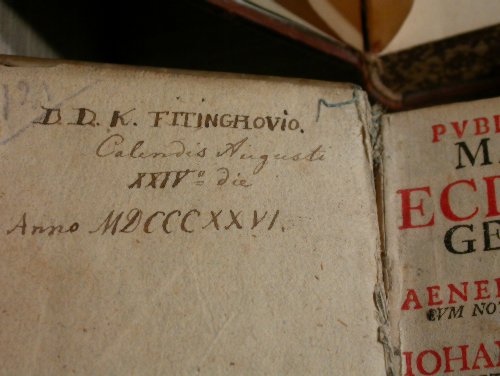 D. D. K. FITINGHOVIO.
Calendis Augusti
XXIVº die
Anno MDCCCXXVI.
PVB
M
ECL
GE
AENE
CVM NO
IOHA